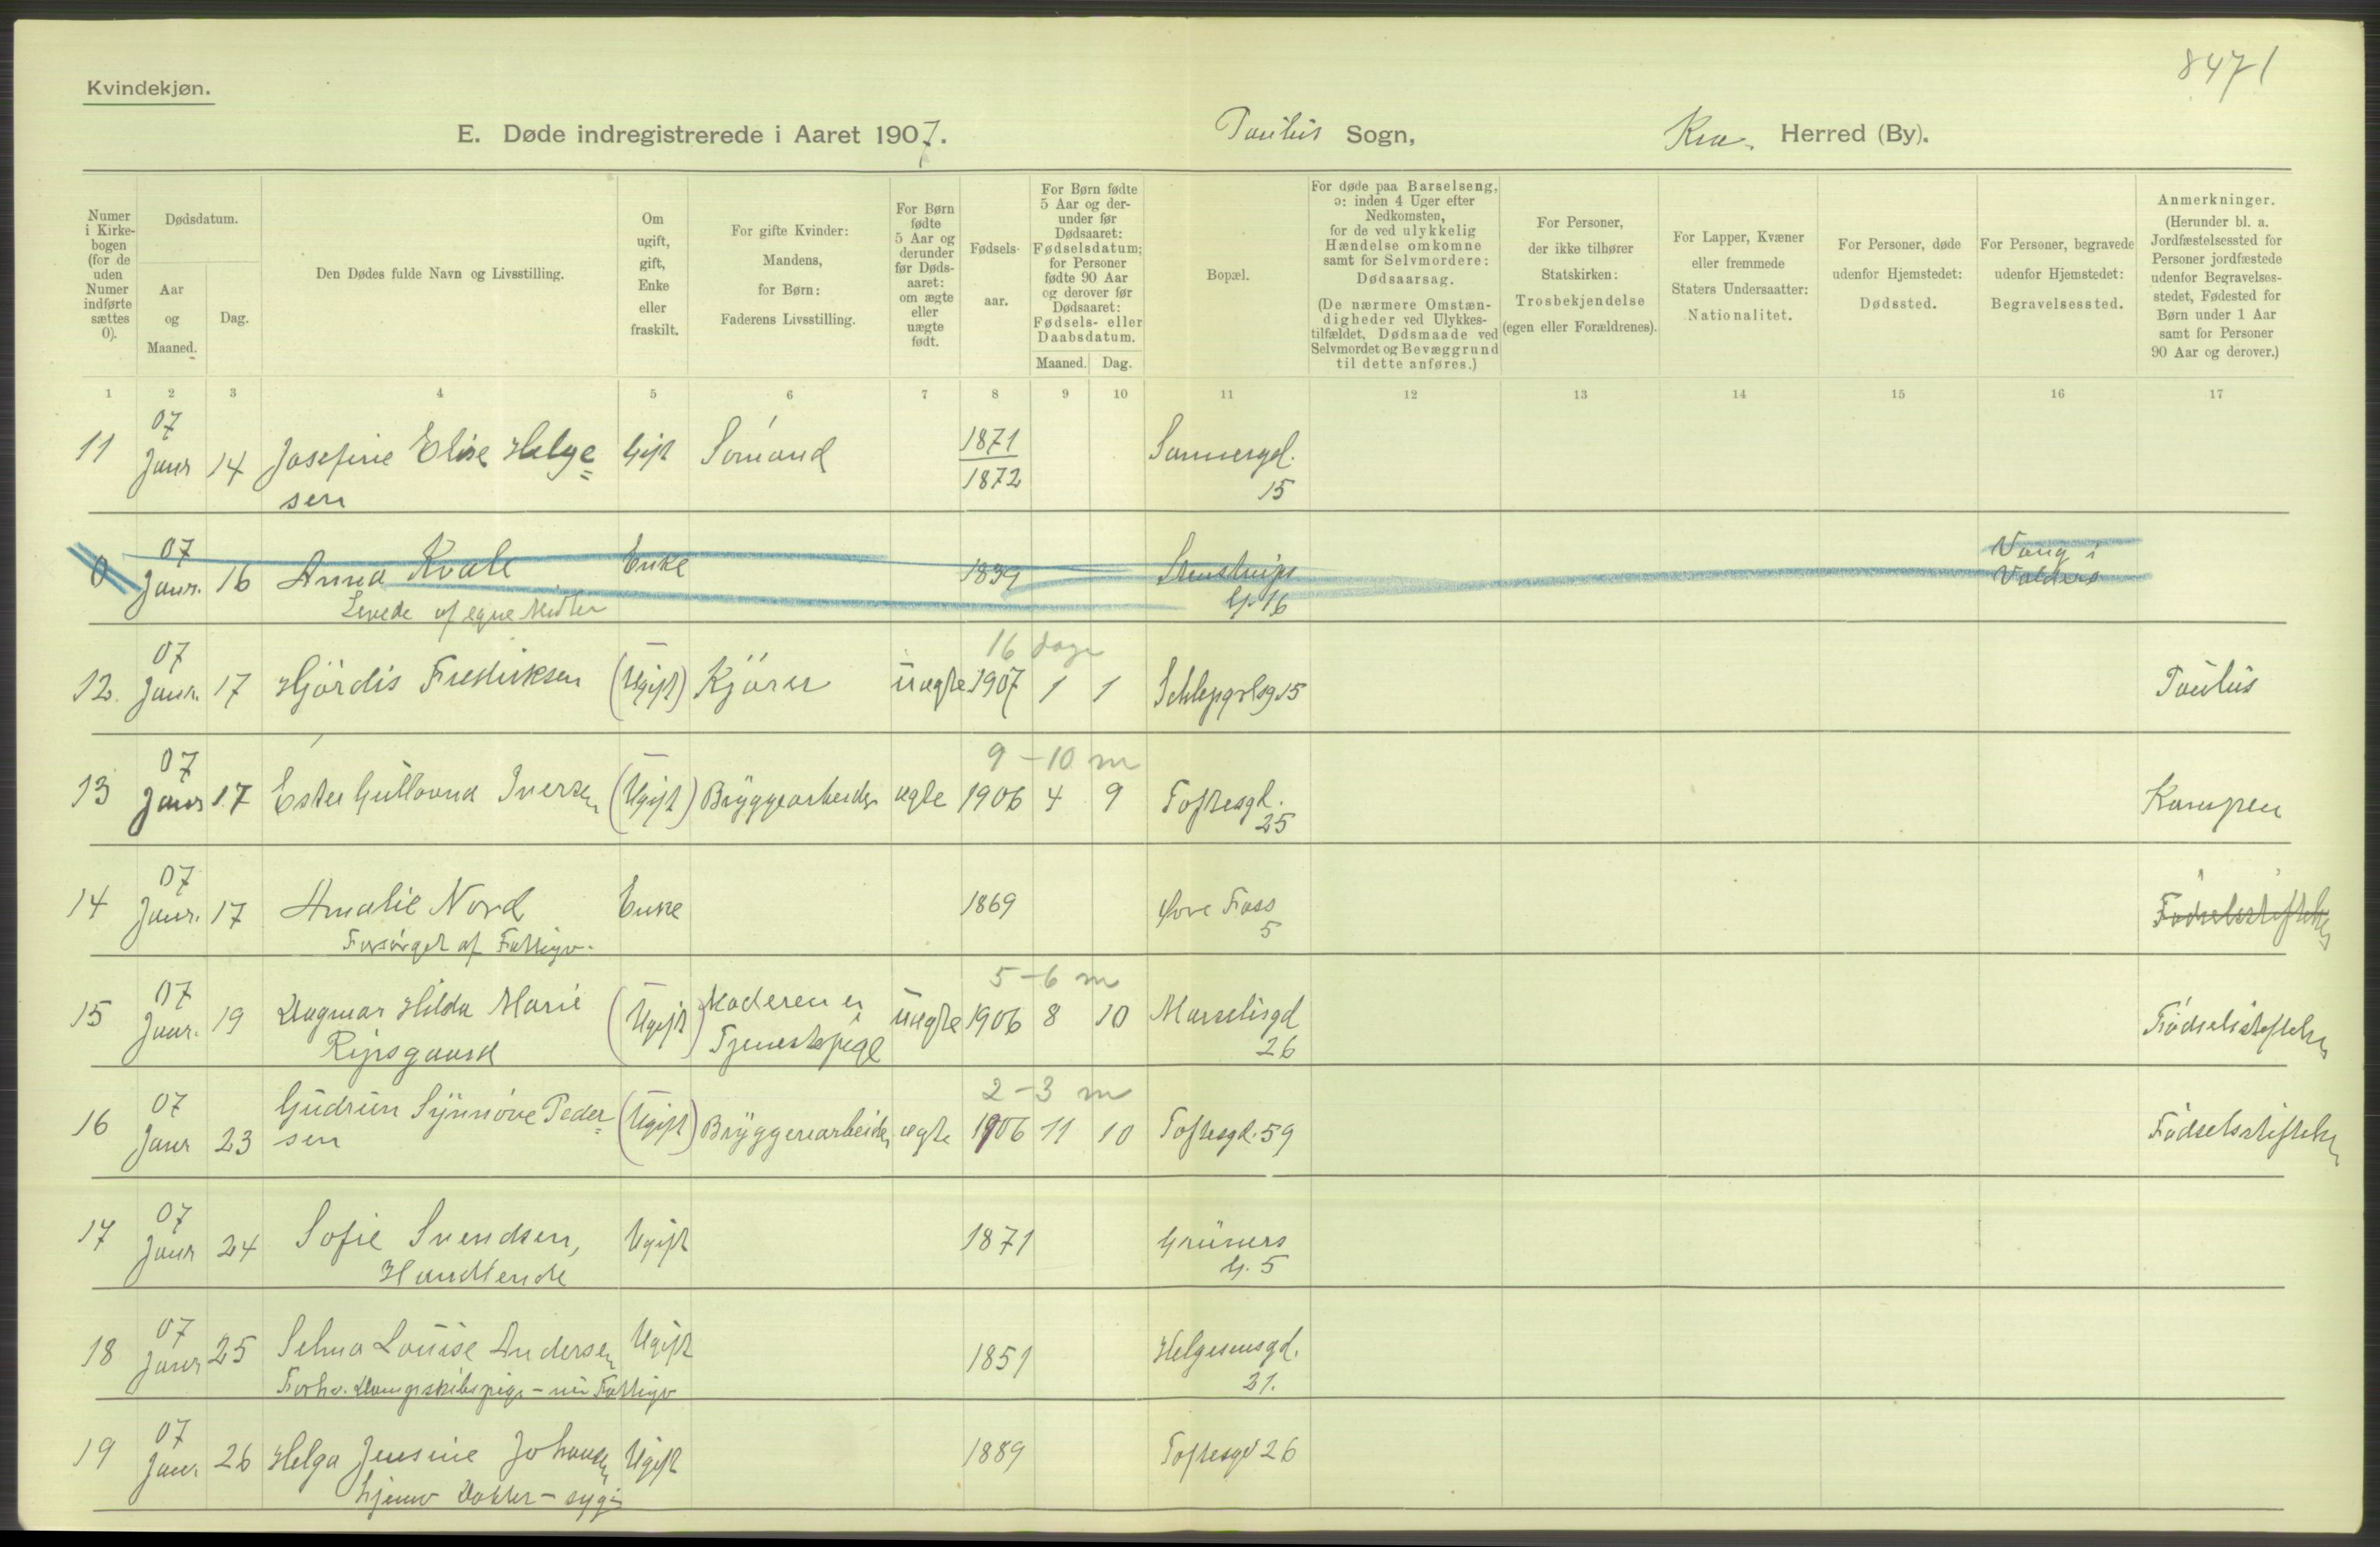 8471
Kvindekjøn.
E. Døde indregistrerede i Aaret 1907. Paulus Sogn, Kra. Herred (By).
Numer i Kirke-bogen (for de uden Numer indførte sættes 0).
Dødsdatum.
Aar og Maaned.
Dag.
Den Dødes fulde Navn og Livsstilling.
Om ugift, gift, Enke eller fraskilt.
For gifte Kvinder: Mandens, for Børn: Faderens Livsstilling.
For Børn fødte 5 Aar og derunder før Døds-aaret: om ægte eller uægte født.
Fødsels-aar.
For Børn fødte 5 Aar og der-under før Dødsaaret: Fødselsdatum; for Personer fødte 90 Aar og derover før Dødsaaret: Fødsels- eller Daabsdatum.
Maaned. Dag.
Bopæl.
For døde paa Barselseng, ɔ: inden 4 Uger efter Nedkomsten, for de ved ulykkelig Hændelse omkomne samt for Selvmordere: Dødsaarsag.
(De nærmere Omstæn-digheder ved Ulykkes-tilfældet, Dødsmaade ved Selvmordet og Bevæggrund til dette anføres.)
For Personer, der ikke tilhører Statskirken: Trosbekjendelse (egen eller Forældrenes).
For Lapper, Kvæner eller fremmede Staters Undersaatter: Nationalitet.
For Personer, døde udenfor Hjemstedet: Dødssted.
For Personer, begravede udenfor Hjemstedet: Begravelsessted.
Anmerkninger.
(Herunder bl. a. Jordfæstelsessted for Personer jordfæstede udenfor Begravelses-stedet, Fødested for Børn under 1 Aar samt for Personer 90 Aar og derover.)
1 2 3 4 5 6 7 8 9 10 11 12 13 14 15 16 17
07
11 Janr 14 Josefine Elise Helge= Gift Sømand 1871
1872 Sannergd.
sen 15
07
0 Janr. 16 Anna Kvale Enke 1839 Stenstrups Vang i
Levede af egne Midler G. 16 Valders
07 16 dage
12. Janr. 17 Hjørdis Fredriksen (Ugift) Kjører uægte 1907 1 1 Schleppgrlsg 15 Paulus
07 9-10 m
13 Janr 17 Ester Gullovna Iversen (Ugift) Bryggearbeider ægte 1906 4 9 Toftesgd. Kampen
25
07
14 Janr. 17 Amalie Nord Enke 1869 Øvre Foss Fødselsstiftelsen
Forsørget af Fattigv. 5
07 5-6 m
15 Janr. 19 Dagmar Hilda Marie (Ugift) Moderen er uægte 1906 8 10 Marselisgd Fødselsstiftelsen
Ripsgaard Tjenestepige 26
07 2-3 m
16 Janr 23 Gudrun Synnøve Peder= (Ugift) Bryggeriarbeider ægte 1906 11 10 Toftesgd. 59 Fødselsstiftelsen
sen
07
17 Janr 24 Sofie Svendsen, Ugift 1871 Grüners
Handlende G. 5
07
18 Janr 25 Selma Louise Andersen Ugift 1851 Helgesensgd.
Forhv. Dampskibspige - nu Fattigv 31.
07
19 Janr 26 Helga Jensine Johansen Ugift 1889 Toftesgd 26
hjemv Datter - syg